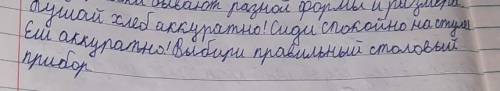 бывают разной формы и размера
Кушай хлеб аккуратно! Сиди спокойно на стуле
Ешь аккуратно! Выбири правильный столовый
прибор